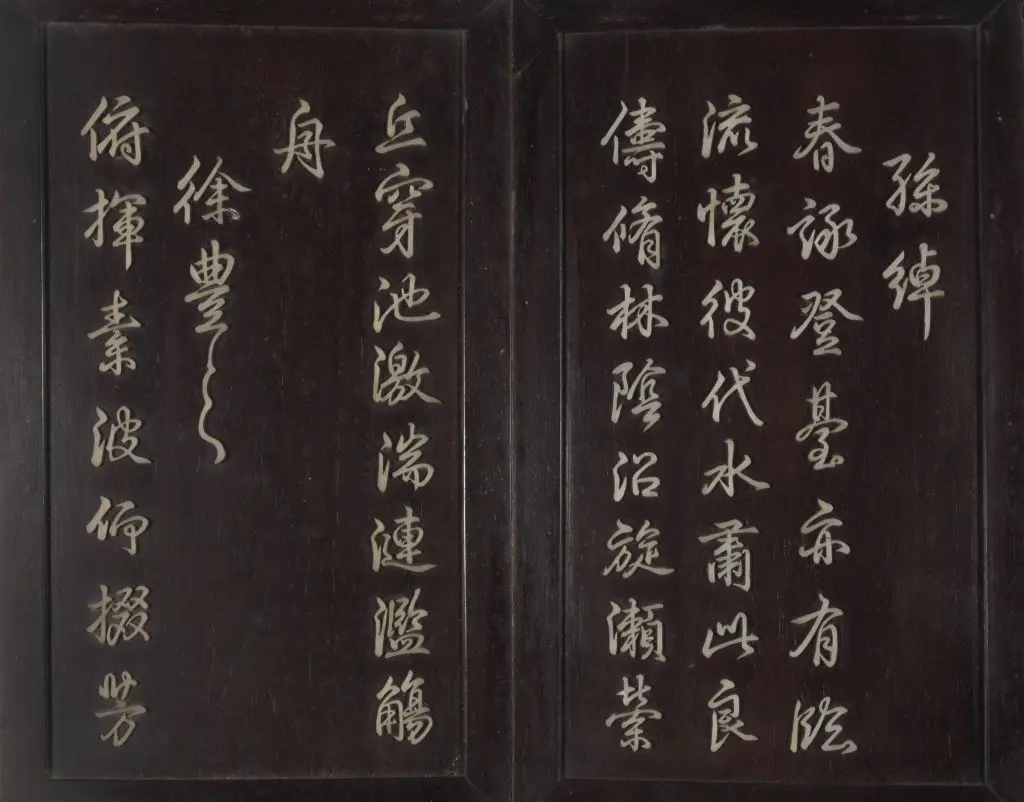 孫綽
春詠登臺亦有臨
流懷彼代水肅此良
儔脩林陰沼旋瀨縈
丘穿池激湍漣濫觴
舟
徐豐之
俯揮素波仰掇芳